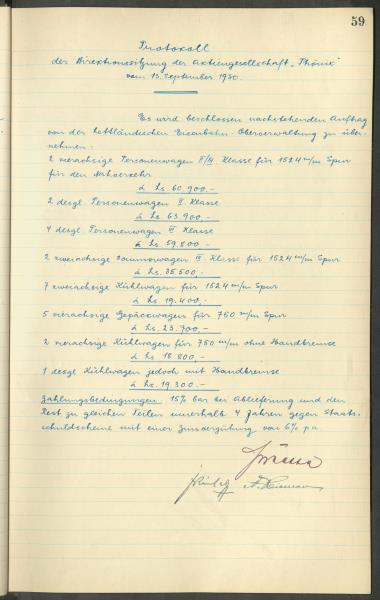 59
Protokoll
der Direktionssitzung der Aktiengesellschaft „Phönix"
vom 13. September 1930.
Es wird beschlossen nachstehenden Auftrag
von der Lettländischen Eisenbahn-Oberverwaltung zu über-
nehmen:
2 vierachsige Personenwagen II/III Klasse für 1524 m/m Spur
für den Nahverkehr
à Ls. 60.900,-
2 desgl. Personenwagen II. Klasse
à Ls. 63.900,-
4 desgl. Personenwagen III Klasse
à Ls. 59.800,-
2 zweiachsige Sommerwagen III. Klasse für 1524 m/m Spur
à Ls. 35.500,-
7 zweiachsige Kühlwagen für 1524 m/m Spur
à Ls. 19.400,-
5 vierachsige Gepäckwagen für 750 m/m Spur
à Ls. 23.700,-
2 vierachsige Kühlwagen für 750 m/m ohne Handbremse
à Ls. 18.800,-
1 desgl. Kühlwagen jedoch mit Handbremse
à Ls. 19.300.-
Zahlungsbedingungen: 15% bar bei Ablieferung und den
Rest zu gleichen Teilen innerhalb 4 Jahren gegen Staats-
schuldscheine mit einer Zinsvergütung von 6% p.a